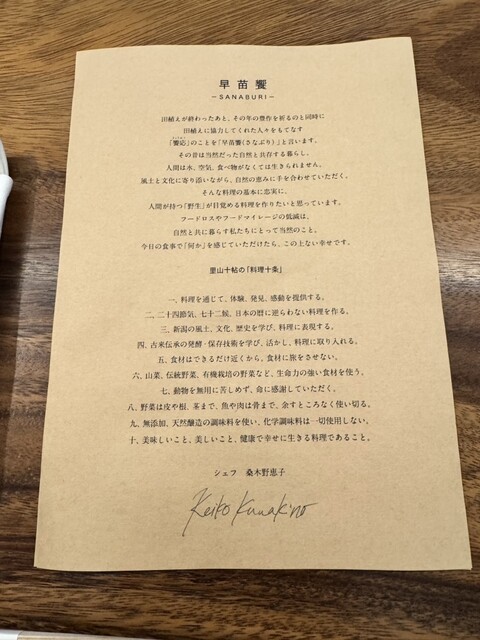 早苗饗
－SANABURI－
田植えが終わったあと、その年の豊作を祈るのと同時に
田植えに協力してくれた人々をもてなす
「饗応」のことを「早苗饗(さなぶり)」と言います。
その昔は当然だった自然と共存する暮らし。
人間は水、空気、食べ物がなくては生きられません。
風土と文化に寄り添いながら、自然の恵みに手を合わせていただく。
そんな料理の基本に忠実に、
人間が持つ「野生」が目覚める料理を作りたいと思っています。
フードロスやフードマイレージの低減は、
自然と共に暮らす私たちにとって当然のこと。
今日の食事で「何か」を感じていただけたら、この上ない幸せです。
里山十帖の「料理十条」
一、料理を通じて、体験、発見、感動を提供する。
二、二十四節気、七十二候、日本の暦に逆らわない料理を作る。
三、新潟の風土、文化、歴史を学び、料理に表現する。
四、古来伝承の発酵・保存技術を学び、活かし、料理に取り入れる。
五、食材はできるだけ近くから、食材に旅をさせない。
六、山菜、伝統野菜、有機栽培の野菜など、生命力の強い食材を使う。
七、動物を無用に苦しめず、命に感謝していただく。
八、野菜は皮や根、茎まで、魚や肉は骨まで、余すところなく使い切る。
九、無添加、天然醸造の調味料を使い、化学調味料は一切使用しない。
十、美味しいこと、美しいこと、健康で幸せに生きる料理であること。
シェフ　桑木野恵子
Keiko Kuwakino